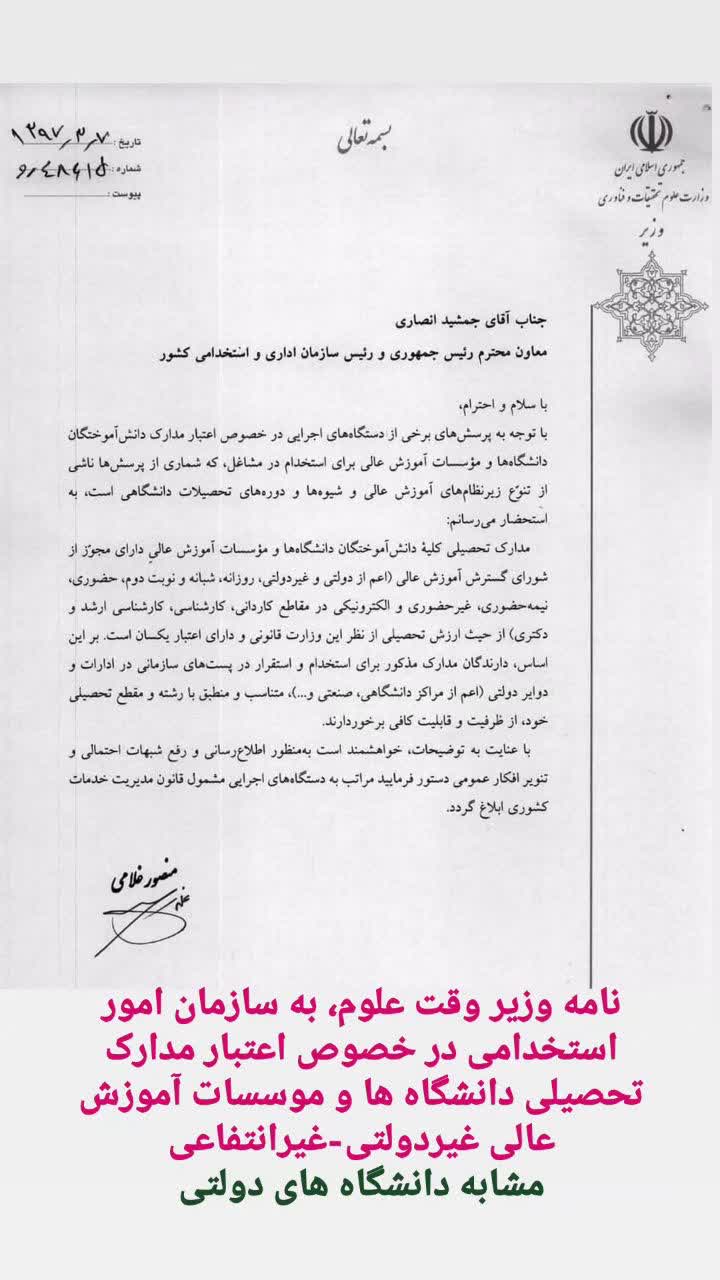 بسمه تعالی
جمهوری اسلامی ایران
وزارت علوم تحقیقات و فناوری
وزیر
تاریخ: ۱۳۹۷٫۳٫۷
شماره:
پیوست:
جناب آقای جمشید انصاری
معاون محترم رئیس جمهوری و رئیس سازمان اداری و استخدامی کشور
با سلام و احترام،
با توجه به پرسش‌های برخی از دستگاه‌های اجرایی در خصوص اعتبار مدارک دانش‌آموختگان
دانشگاه‌ها و مؤسسات آموزش عالی برای استخدام در مشاغل، که شماری از پرسش‌ها ناشی
از تنوّع زیرنظام‌های آموزش عالی و شیوه‌ها و دوره‌های تحصیلات دانشگاهی است، به
استحضار می‌رسانم:
مدارک تحصیلی کلیۀ دانش‌آموختگان دانشگاه‌ها و مؤسسات آموزش عالیِ دارای مجوّز از
شورای گسترش آموزش عالی (اعم از دولتی و غیردولتی، روزانه، شبانه و نوبت دوم، حضوری،
نیمه‌حضوری، غیرحضوری و الکترونیکی در مقاطع کاردانی، کارشناسی، کارشناسی ارشد و
دکتری) از حیث ارزش تحصیلی از نظر این وزارت قانونی و دارای اعتبار یکسان است. بر این
اساس، دارندگان مدارک مذکور برای استخدام و استقرار در پست‌های سازمانی در ادارات و
دوایر دولتی (اعم از مراکز دانشگاهی، صنعتی و...)، متناسب و منطبق با رشته و مقطع تحصیلی
خود، از ظرفیت و قابلیت کافی برخوردارند.
با عنایت به توضیحات، خواهشمند است به‌منظور اطلاع‌رسانی و رفع شبهات احتمالی و
تنویر افکار عمومی دستور فرمایید مراتب به دستگاه‌های اجرایی مشمول قانون مدیریت خدمات
کشوری ابلاغ گردد.
منصور غلامی
نامه وزیر وقت علوم، به سازمان امور
استخدامی در خصوص اعتبار مدارک
تحصیلی دانشگاه ها و موسسات آموزش
عالی غیردولتی-غیرانتفاعی
مشابه دانشگاه های دولتی